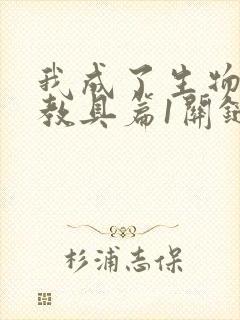 我成了生物
教具篇1關鍵
杉浦志保